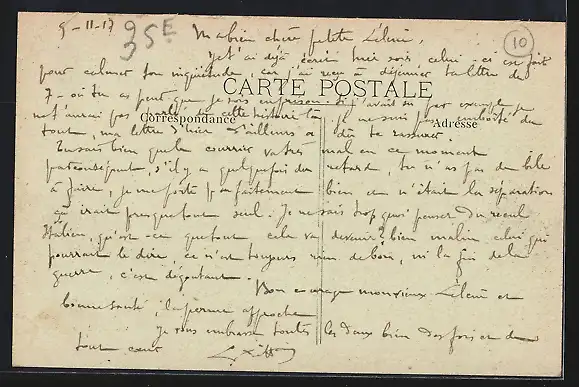 9-11-17
35E
10
Ma bien chère petite
Je t'ai déjà écrit hier soir, celui-ci est fait
pour calmer ton inquiétude, car j'ai reçu à déjeuner ta lettre du
CARTE POSTALE
7 - où tu as peur que je sois en prison. Si j'avais su par exemple je
ne t'aurais pas parlé de cette histoire là je ne suis pas emboîté du
Correspondance
Adresse
tout, ma lettre d'hier d'ailleurs a dû te rassurer.
Tu sais bien que le courrier va très mal en ce moment
par conséquent, s'il y a quelquefois du retard, tu n'as pas de bile
à faire, je me porte parfaitement bien ce n'était la séparation
qui irait presque tout seul. Je ne sais trop quoi penser du recul
Italien, qu'est-ce que tout cela va devenir? bien malin celui qui
pourrait le dire, ce n'est toujours rien de bon, ni la fin de la
guerre, c'est dégoutant.
Bon courage monsieur et
bonne santé, la perme approche
je vous embrasse toutes les deux bien des fois et de
tout cœur